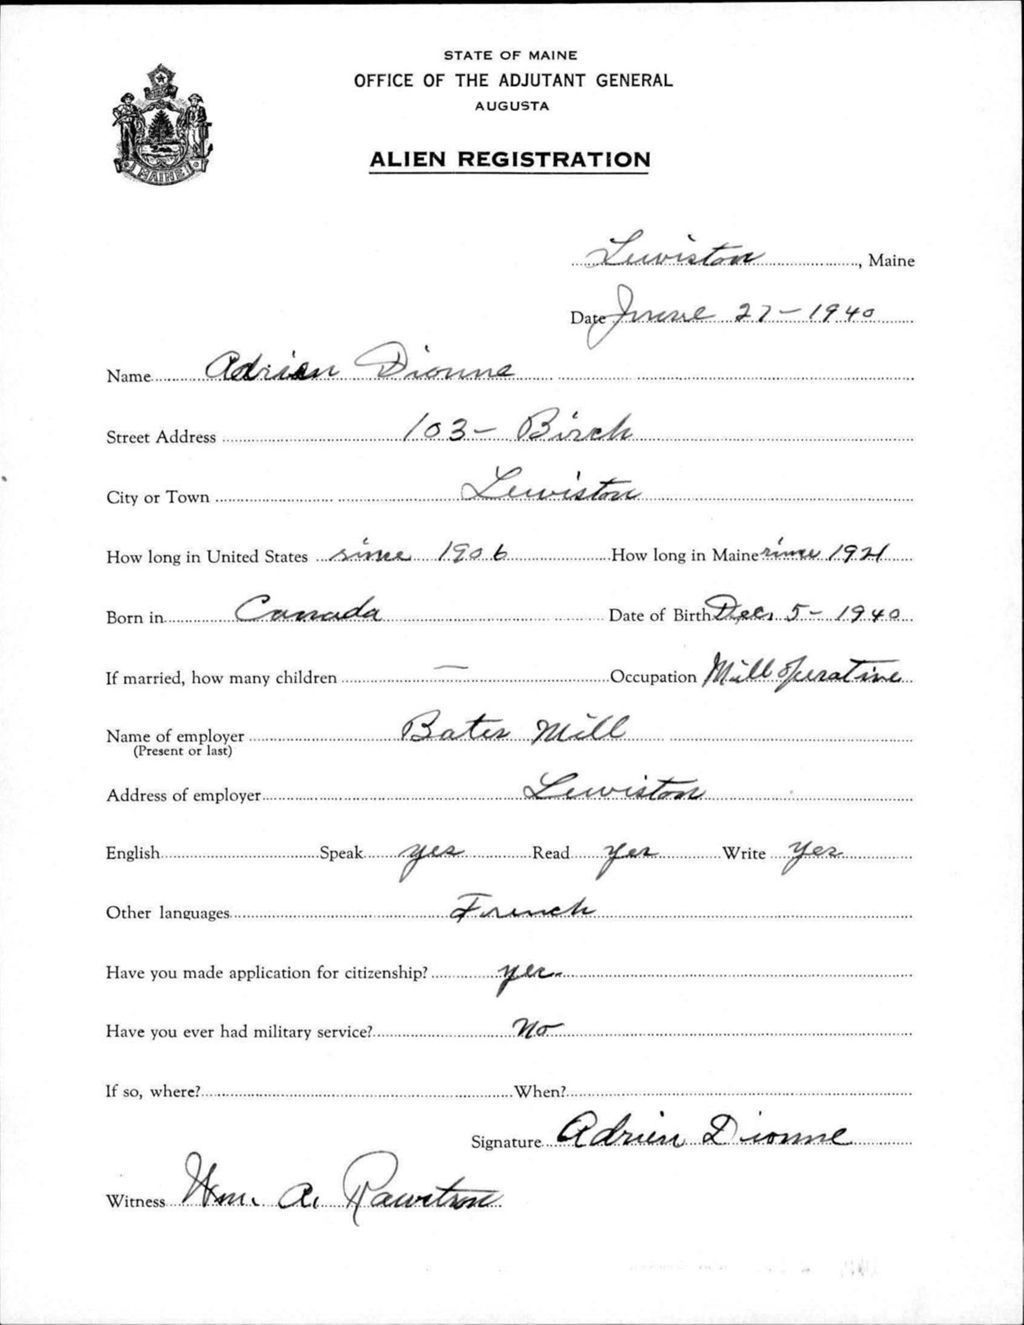 STATE OF MAINE
OFFICE OF THE ADJUTANT GENERAL
AUGUSTA
MAINE
ALIEN REGISTRATION
Lewiston, Maine
Date June 27-1940
Name Adrien Dionne
Street Address 103- Birch
City or Town Lewiston
How long in United States since 1906 How long in Maine since 1921
Born in Canada Date of Birth Dec. 5- 1940
If married, how many children — Occupation Mill operative
Name of employer Bates Mill
(Present or last)
Address of employer Lewiston
English Speak yes Read yes Write yes
Other languages French
Have you made application for citizenship? yes
Have you ever had military service? No
If so, where? When?
Signature Adrien Dionne
Witness Wm. A.